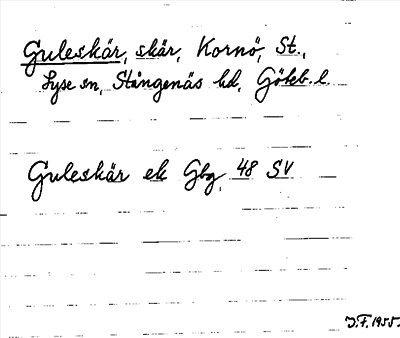 Guleskär, skär, Kornö, St.,
Lyse sn, Stångenäs hd, Göteb. l.
Guleskär ek Gbg, 48 SV
J.F. 1955.